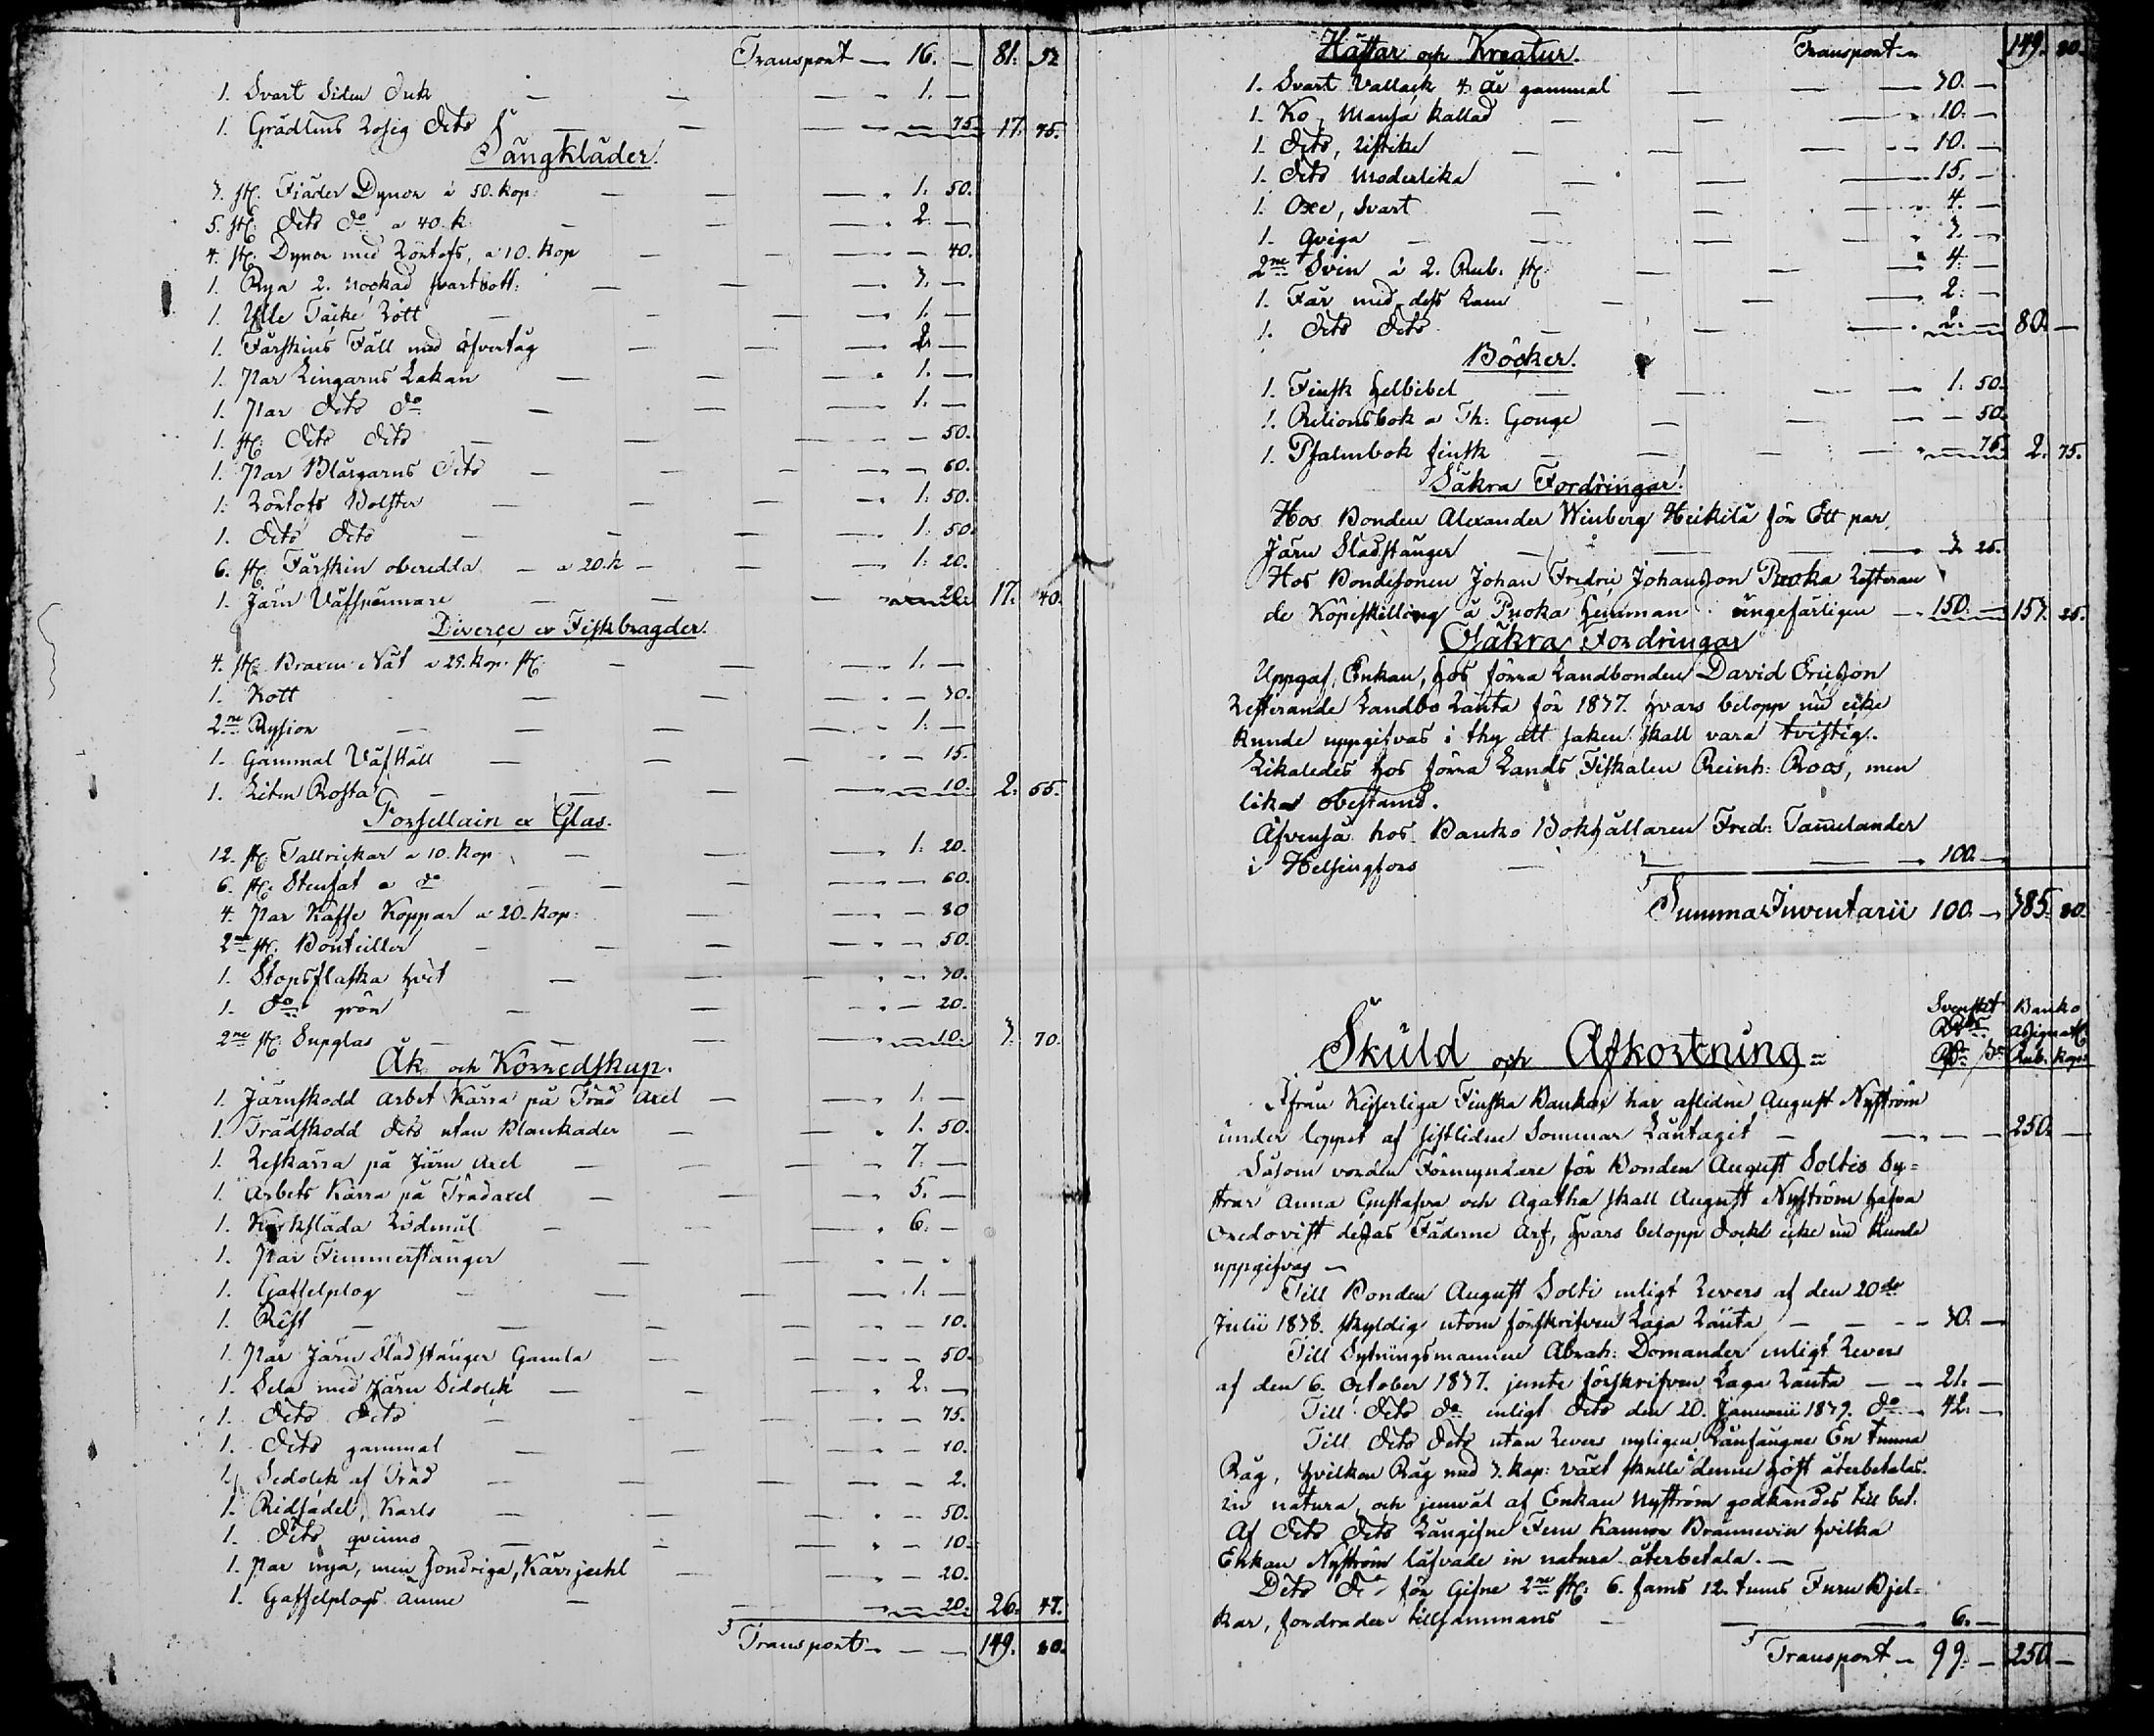 Transport — 16. — 81. 52
1. Svart Siden Duk — 1. —
1. Grådlins Rosig Dito — 75. 17. 75.
Sängkläder.
3. st. Fjäder Dynor à 50. kop: — 1. 50.
5. st. Dito Do à 40. k — 2. —
4. st. Dynor med Rörtofs, à 10. kop — 40.
1. Rya 2. nockad svartbott: — 3. —
1. Ulle Täcke Rött — 1. —
1. Fårskins Fäll med öfvertåg — 2. —
1. Par Lingarns Lakan — 1. —
1. Par Dito Do — 1. —
1. st. Dito Dito — 50.
1. Par Blårgarns Dito — 60.
1. Rörtofs Bolster — 1. 50.
1. Dito Dito — 1. 50.
6. st. Fårskin oberedda — à 20. k — 1. 20.
1. Järn Väfspännare — 20. 17. 40.
Diverse av Fiskbragder.
4. st. Braxen Nät à 25. kop. st. — 1. —
1. Kott — 30.
2ne Rysior — 1. —
1. Gammal Väfställ — 15.
1. Liten Rosta — 10. 2. 55.
Porsellain et Glas.
12. st. Tallrickar à 10. kop — 1. 20.
6. st. Stenfat à do — 60.
4. Par Kaffe Koppar à 20. kop: — 80
2ne st. Bouteiller — 50.
1. Stopsflaska hvit — 30.
1. Do grön — 20.
2ne st. Supglas — 10. 3. 70.
Åk och Körredskap.
1. Järnskodd Arbet Kärra på Träd Axel — 1. —
1. Trädskodd Dito utan Blankader — 1. 50.
1. Reskärra på Järn Axel — 7. —
1. Arbets Kärra på Trädaxel — 5. —
1. Kyrksläda Rödmål — 6. —
1. Par Fimmerstänger — . — .
1. Gaffelplog — 1. —
1. Rist — 10.
1. Par Järn Slädstänger Gamla — 50.
1. Sela med Järn Sedolek — 2. —
1. Dito Dito — 75.
1. Dito gammal — 10.
1. Sedolek af Träd — 2.
1. Ridsadel, Karls — 50.
1. Dito qvinns — 10.
1. Par nya, men Kärrjuhl — 20.
1. Gaffelplogs Ämne — 20. 26. 47.
Transport — 149. 80.
Hästar och Kreatur. Transport — 149. 80.
1. Svart Vallack 4. år gammal — 30. —
1. Ko, Mansa kallad — 10. —
1. Dito, Ristike — 10. —
1. Dito Moderlika — 15. —
1. Oxe, Svart — 4. —
1. Qviga — 3. —
2ne Svin à 2. Rub. st. — 4. —
1. Får med dess Lam — 2. —
1. Dito Dito — 2. — 80. —
Böcker.
1. Finsk Helbibel — 1. 50.
1. Relionsbok a Th: Gouge — 50.
1. Psalmbok finsk — 75 2. 75.
Säkra Fordringar.
Hos Bonden Alexander Winberg Heikilä för Ett par
Järn Slädstänger — 3. 25.
Hos Bondesonen Johan Fredric Johansson Puoka Resteran
de Köpeskilling å Puoka Hemman ungefärligen — 150. — 153. 25.
Osäkra Fordringar
Uppgaf Enkan, hos förra Landbonden David Ericsson
Resterande Landbo Ränta för 1837. hvars belopp nu icke
kunde uppgifvas i thy att saken skall vara tvistig.
Likaledes hos förra Lands Fiskalen Reinh: Roos, men
lika obestämd.
Äfvenså hos Banko Bokhållaren Fred: Tamelander
i Helsingfors — 100. —
Summa Inventarii 100. — 385. 80.
Skuld och Afkortning =
Svenskt Banko
Rdr assignat
Rdr sk Rub. kop.
Ifrån Kejserliga Finska Banken har aflidne August Nyström
under loppet af sistlidne Sommar Låntagit — 250. —
Såsom vorden Förmyndare för Bonden August Soltis Sy=
strar Anna Gustafva och Agatha skall August Nyström hafva
Oredovist dessas Fäderne Arf, hvars belopp dock icke nu kunde
uppgifvas —
Till Bonden August Solti enligt Revers af den 20de
Julii 1838. skyldig utom förskrifven Laga Ränta — 30. —
Till Sytningsmannen Abrah: Domander enligt Revers
af den 6. October 1837. jemte förskrifven Laga Ränta — 21. —
Till Dito Do enligt Dito den 20. Januarii 1839. Do — 42. —
Till Dito Dito utan Revers nyligen Lånfångne En tunna
Råg, hvilken Råg med 3. kap: växt skulle denne höst återbetalas
in natura, och jemväl af Enkan Nyström godkändes till bet.
Af Dito Dito Långifne Fem Kannor Brännevin hvilka
Enkan Nyström låfvade in natura återbetala. —
Dito Do för Gifne 2ne st. 6. fams 12. tums Furu Bjel=
kar, fordrades tillsammans — 6. —
Transport — 99. — 250. —